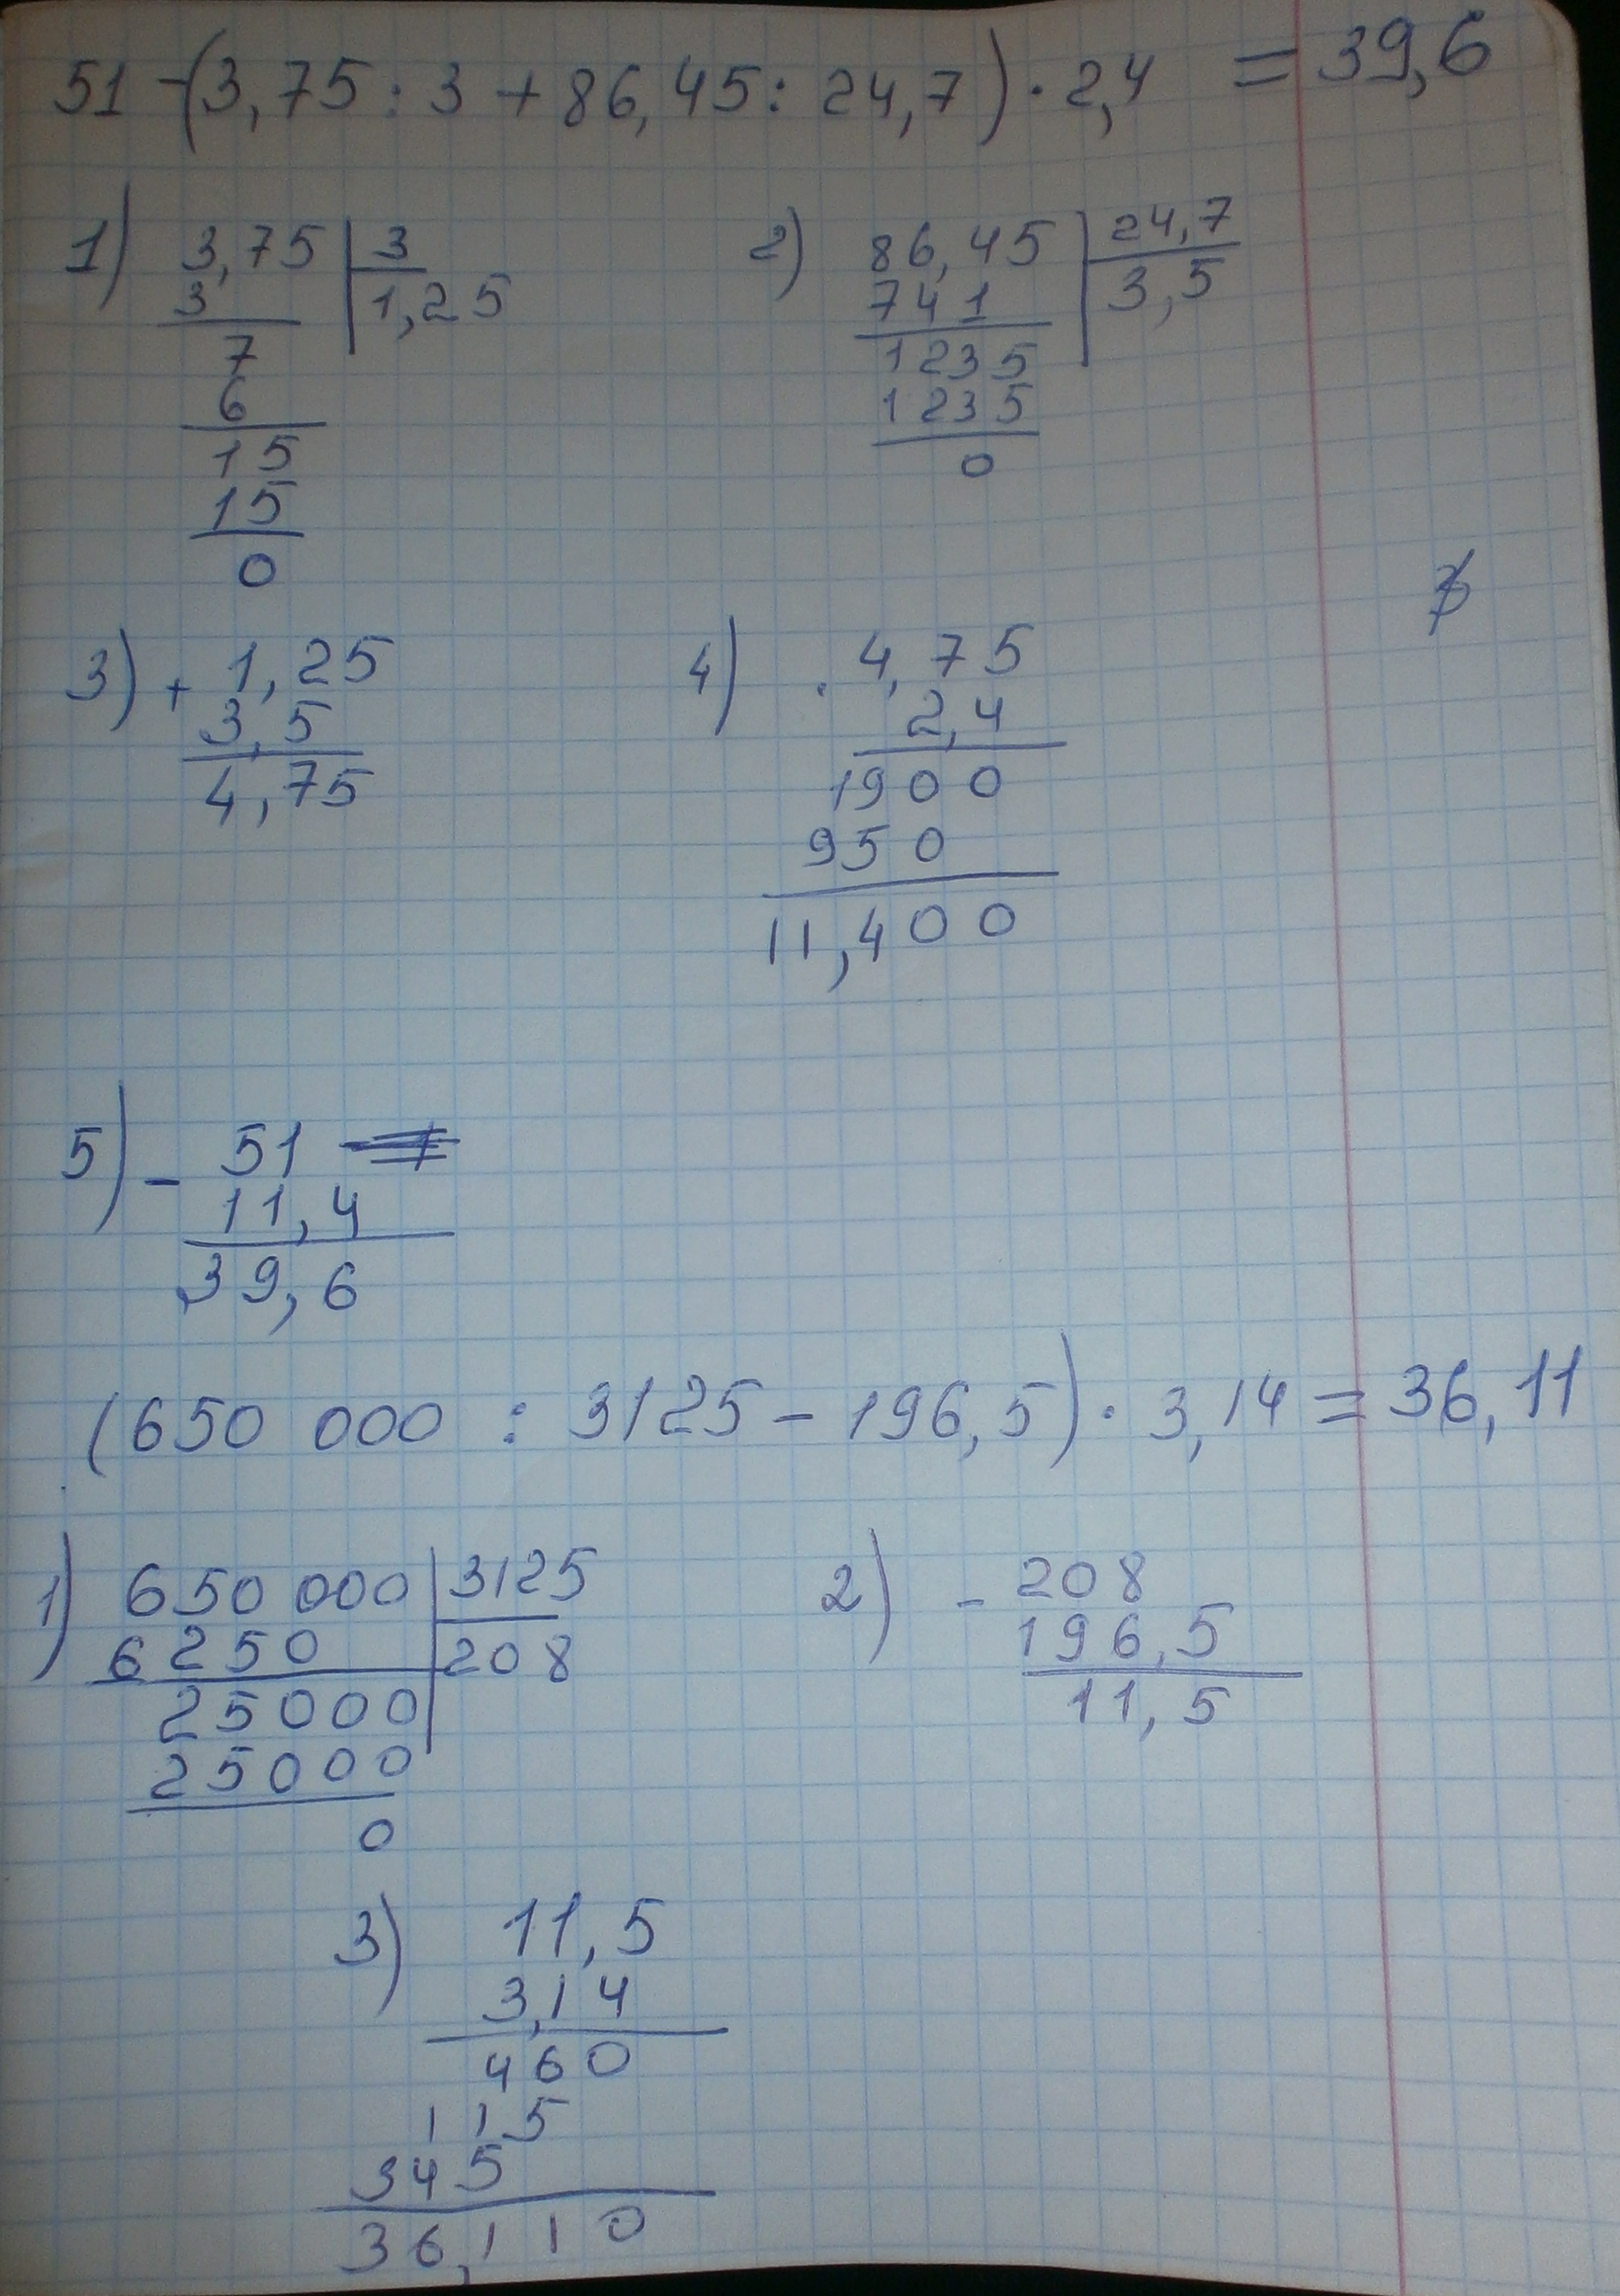 51 - (3,75 : 3 + 86,45 : 24,7) · 2,4 = 39,6
1) 3,75 | 3
3 | 1,25
7
6
15
15
0
2) 86,45 | 24,7
741 | 3,5
1235
1235
0
3) + 1,25
3,5
4,75
4) · 4,75
2,4
1900
950
11,400
5) - 51
11,4
39,6
(650 000 : 3125 - 196,5) · 3,14 = 36,11
1) 650 000 | 3125
6250 | 208
25000
25000
0
2) - 208
196,5
11,5
3) 11,5
3,14
460
115
345
36,110